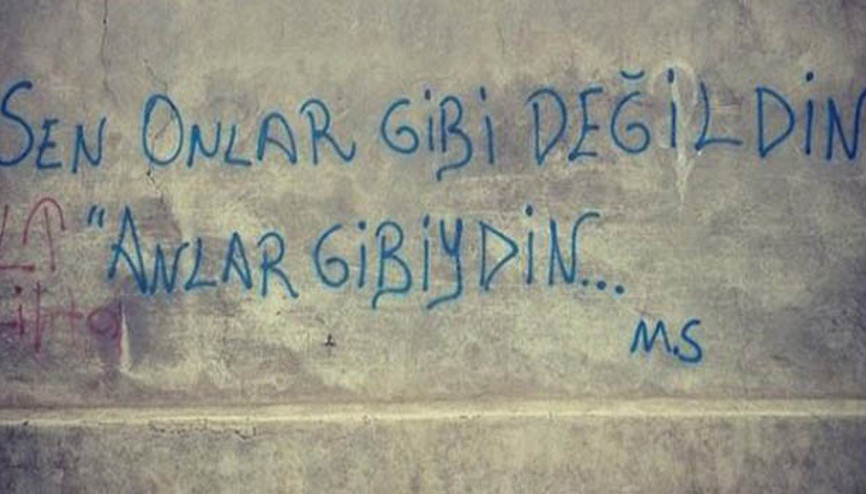 SEN ONLAR GİBİ DEĞİLDİN
"ANLAR GİBİYDİN...
M.S